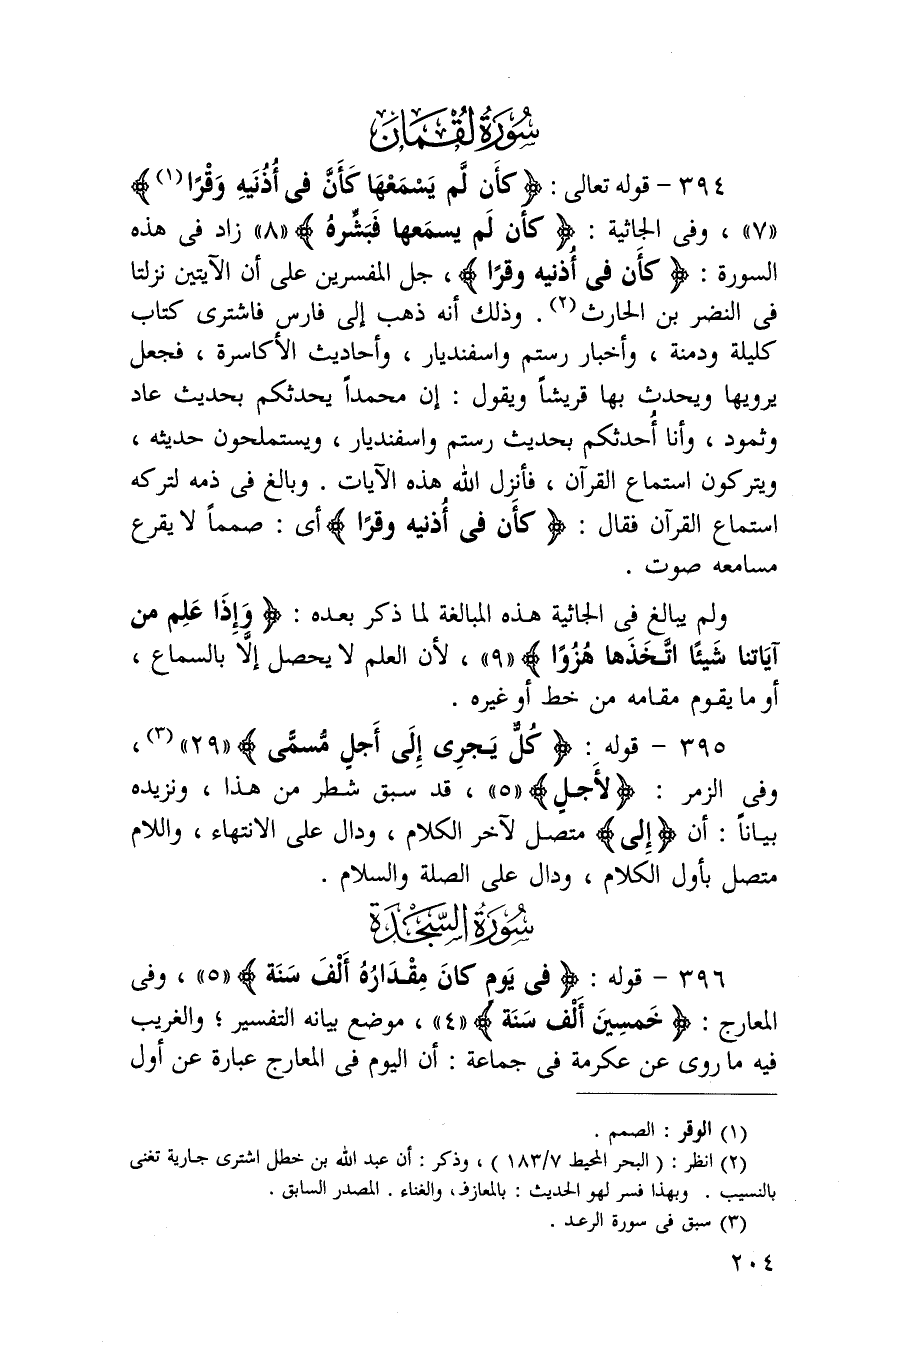 سُورَةُ لُقْمَان
٣٩٤ - قوله تعالى : ﴿ كأَن لَّم يَسْمَعْهَا كَأَنَّ فى أُذُنَيهِ وَقْرًا(١) ﴾
«٧» ، وفى الجاثية : ﴿ كأن لَم يسمَعها فَبَشِّرهُ ﴾ «٨» زاد فى هذه
السورة : ﴿ كأَن فى أُذنيه وقرًا ﴾ ، جل المفسرين على أن الآيتين نزلتا
فى النضر بن الحارث(٢) . وذلك أنه ذهب إلى فارس فاشترى كتاب
كليلة ودمنة ، وأخبار رستم واسفنديار ، وأحاديث الأكاسرة ، فجعل
يرويها ويحدث بها قريشاً ويقول : إن محمداً يحدثكم بحديث عاد
وثمود ، وأنا أُحدثكم بحديث رستم واسفنديار ، ويستملحون حديثه ،
ويتركون استماع القرآن ، فأنزل الله هذه الآيات . وبالغ فى ذمه لتركه
استماع القرآن فقال : ﴿ كأَن فى أُذنيه وقرًا ﴾ أى : صمماً لا يقرع
مسامعه صوت .
ولم يبالغ فى الجاثية هذه المبالغة لما ذكر بعده : ﴿ وَإِذَا عَلِم من
آيَاتنا شَيئًا اتَّخَذَها هُزُوًا ﴾ «٩» ، لأن العلم لا يحصل إلَّا بالسماع ،
أو ما يقوم مقامه من خط أو غيره .
٣٩٥ - قوله : ﴿ كُلٌّ يَجرِى إِلَى أَجلٍ مُّسمًّى ﴾ «٢٩»(٣) ،
وفى الزمر : ﴿ لأَجلٍ ﴾ «٥» ، قد سبق شطر من هذا ، ونزيده
بياناً : أن ﴿ إلى ﴾ متصل لآخر الكلام ، ودال على الانتهاء ، واللام
متصل بأول الكلام ، ودال على الصلة والسلام .
سُورَةُ السَّجْدَة
٣٩٦ - قوله : ﴿ فى يَومٍ كانَ مِقْدَارُهُ أَلْفَ سَنَة ﴾ «٥» ، وفى
المعارج : ﴿ خَمسِينَ أَلْف سَنَة ﴾ «٤» ، موضع بيانه التفسير ؛ والغريب
فيه ما روى عن عكرمة فى جماعة : أن اليوم فى المعارج عبارة عن أول
(١) الوقر : الصمم .
(٢) انظر : ( البحر المحيط ١٨٣/٧ ) ، وذكر : أن عبد الله بن خطل اشترى جارية تغنى
بالنسيب . وبهذا فسر لهو الحديث : بالمعازف، والغناء . المصدر السابق .
(٣) سبق فى سورة الرعد .
٢٠٤